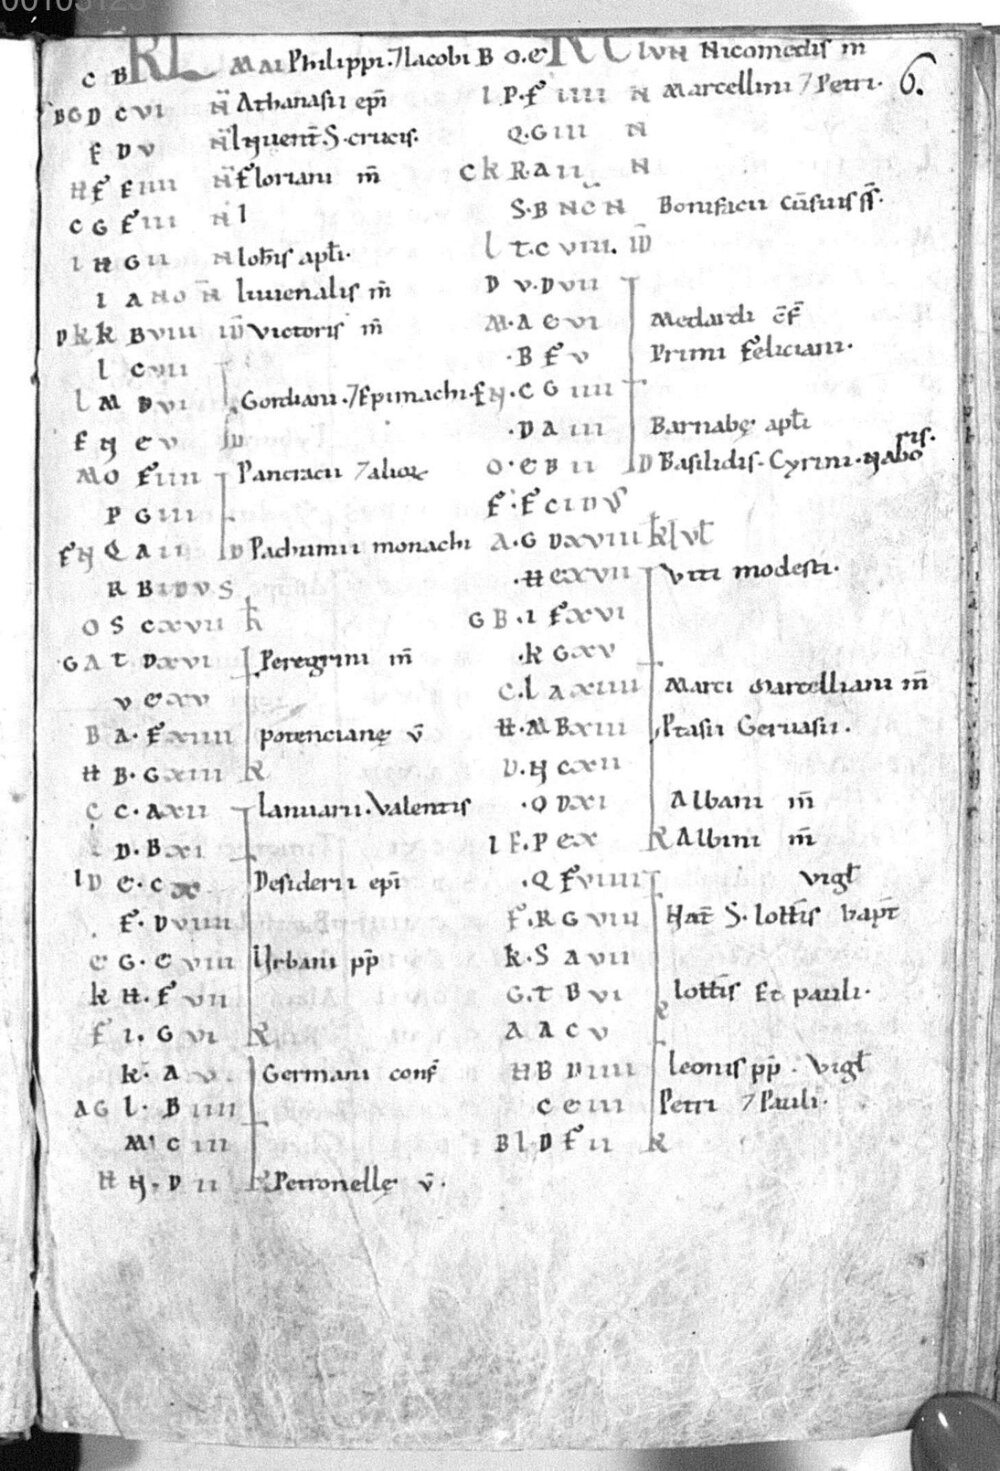 00103123
6.
C B KL MAI Philippi ⁊ Iacobi
BGD C VI N Athanasii epi
E D V N Inuent S. crucis.
H F E IIII N Floriani m̄
C G F III N I
I H G II N Iohis apli.
I A NO N Iuuenalis m̄
D K K B VIII ID Victoris m̄
L C VII
L M D VI Gordiani ⁊ Epimachi.
F N E V ID
M O F IIII Pancracii ⁊ alior
P G III
F N Q A II D Pachumii monachi
R B IDVS
O S C XVII K
G A T D XVI Peregrini m̄
V E XV
B A. F XIIII potencianę v̄
H B. G XIII R
C C. A XII Ianuarii. Valentis
D. B XI
I D E. C X Desiderii epi
F. D VIIII
E G. E VIII Urbani pp
K H. F VII
F I. G VI R
K. A V Germani conf
A G L. B IIII
M. C III
H N. D II R Petronellę v̄.
B O. E KL IVN Nicomedis m
I P. F IIII N Marcellini ⁊ Petri.
Q. G III N
C K R. A II N
S. B NON Bonifacii cū suis
L T. C VIII. ID
D V. D VII
M. A E VI Medardi cf
. B F V Primi Feliciani.
F N. C G IIII
. D A III Barnabę apli
O. E B II D Basilidis. Cyrini. Nabo
ris.
F. F C IDVS
A. G D XVIII KL IVL
. H E XVII Viti modesti.
G B. I F XVI
. K G XV
C. L A XIIII Marci Marcelliani m̄
H. M B XIII Ptasii Geruasii.
D. N C XII
. O D XI Albani m̄
I E. P E X R Albini m̄
. Q F VIIII vigl
F. R G VIII Nat S. Iohis bapt
K. S A VII
G. T B VI Iohis Et pauli.
A A C V R
H B D IIII Leonis pp. Vigl
C E III Petri ⁊ Pauli.
B I. D F II R